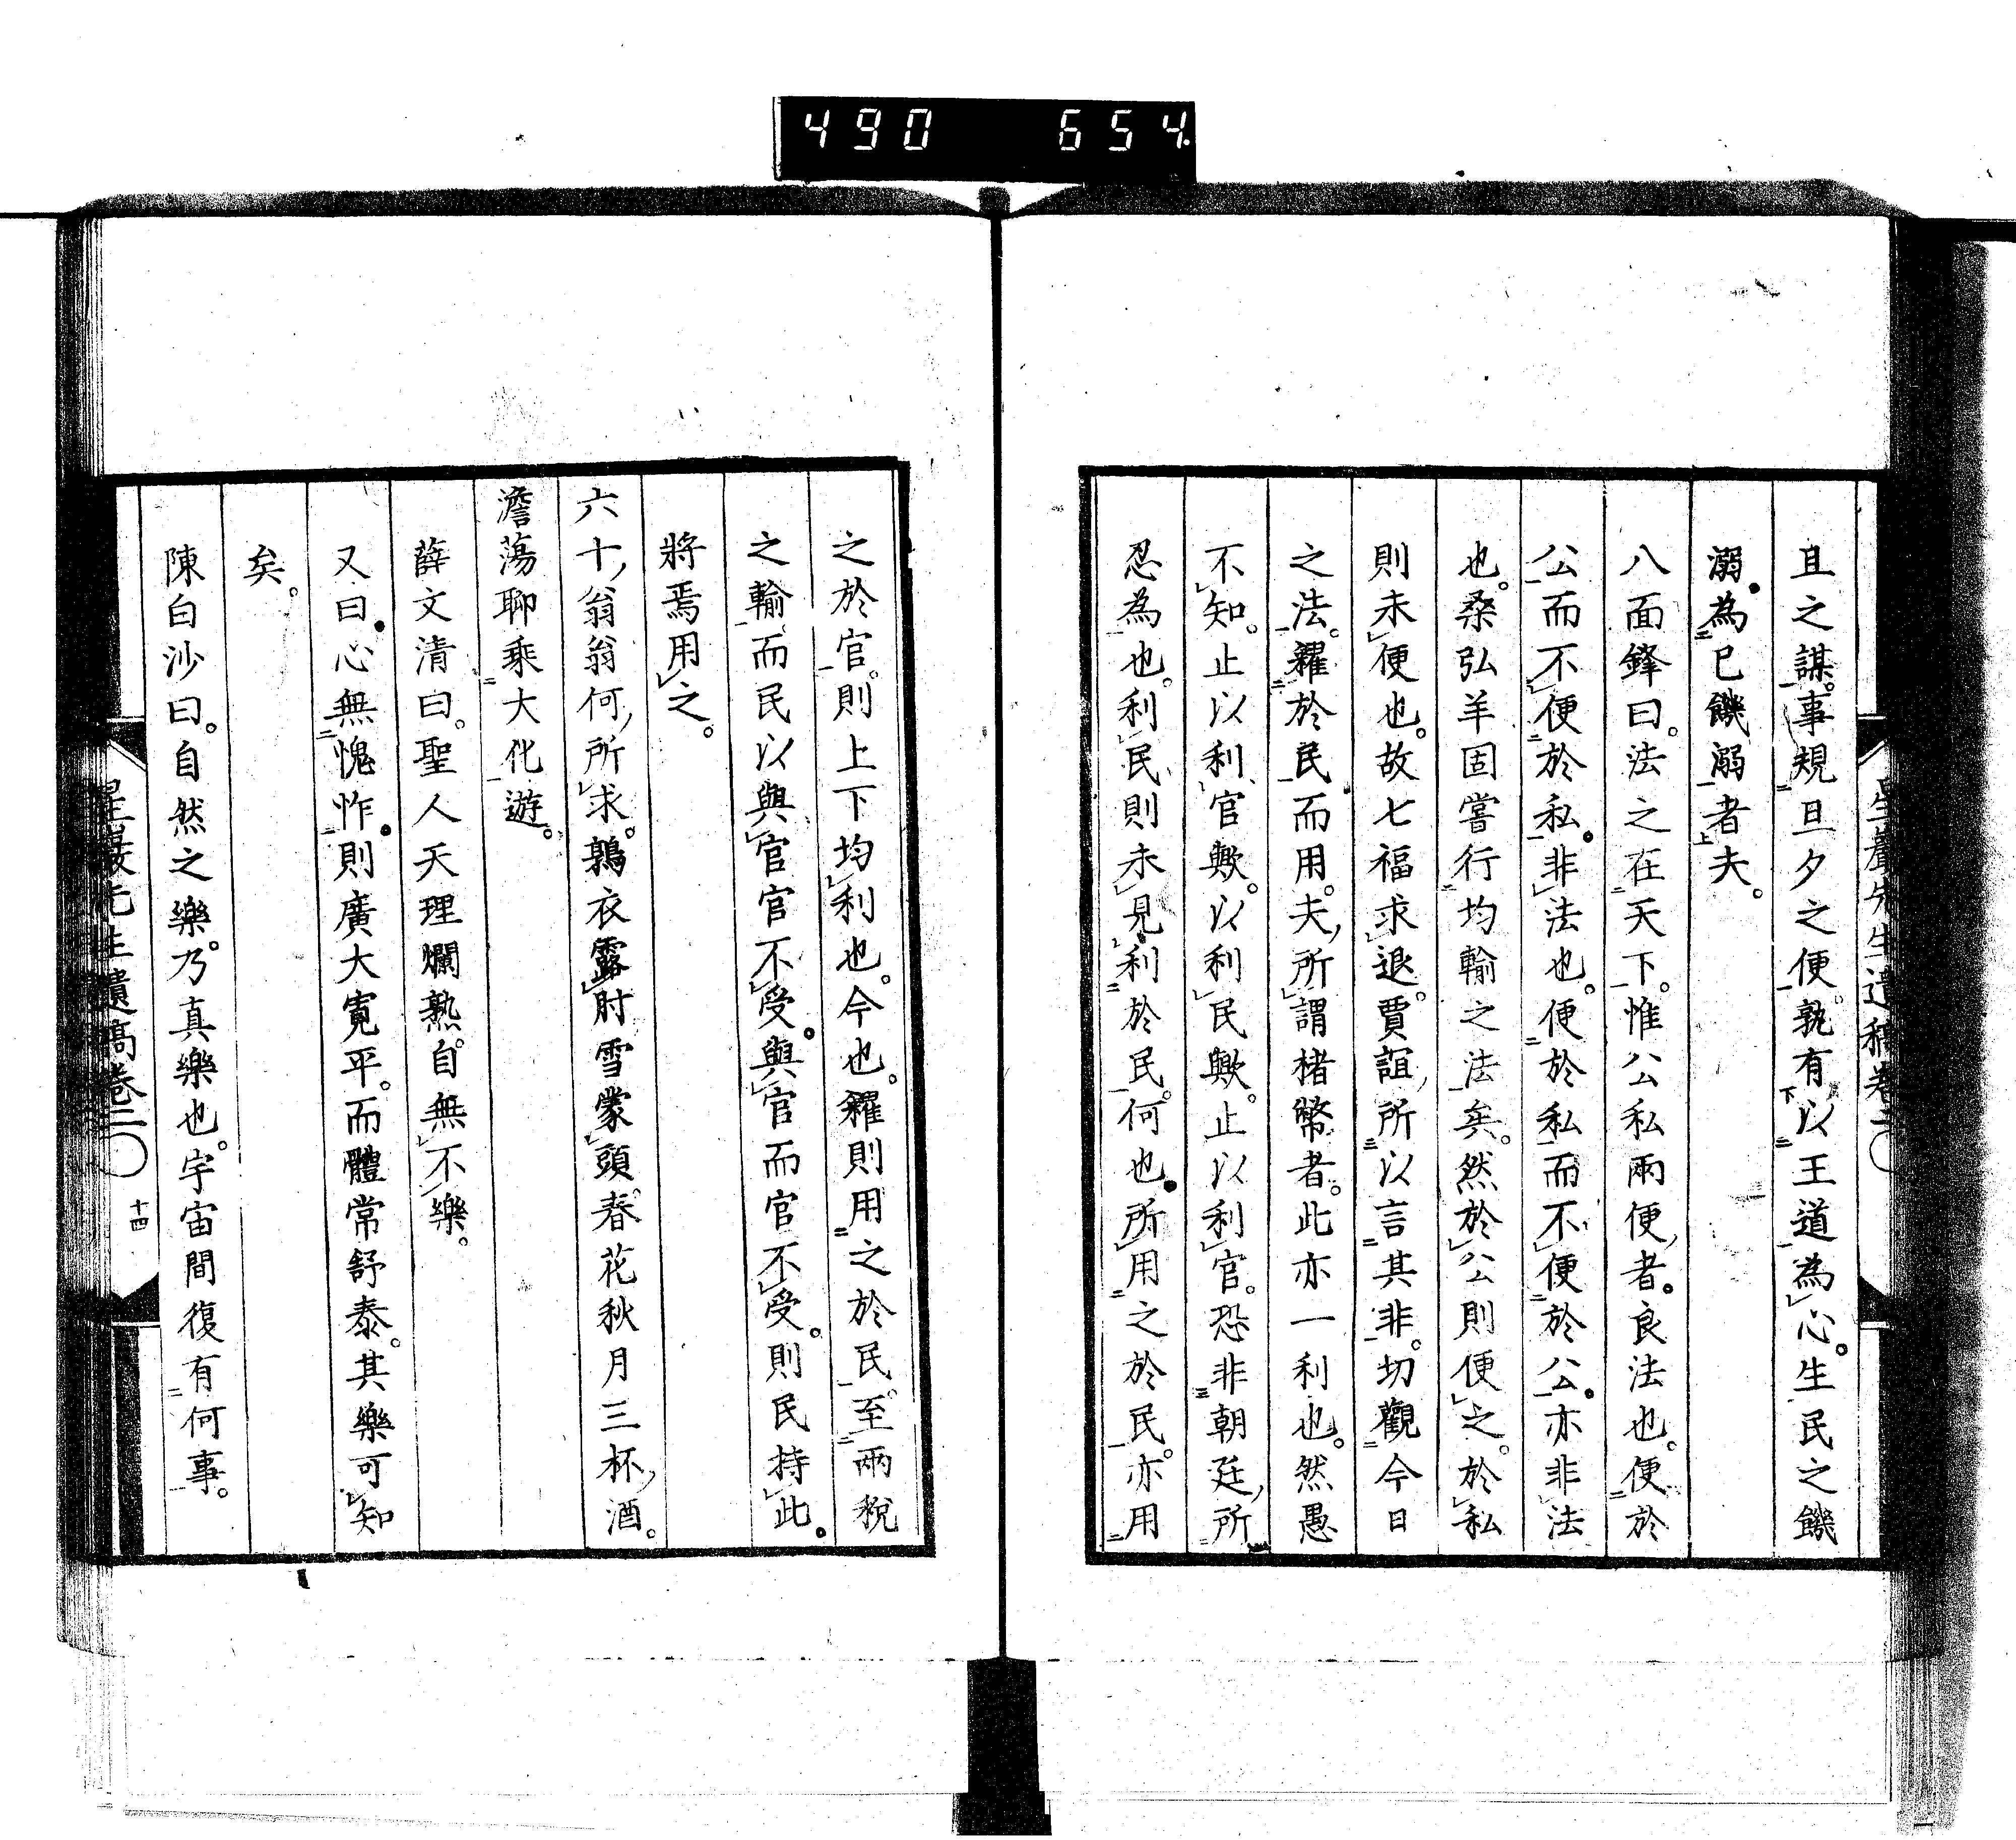 490 654
且之謀。事規旦夕之便。孰有以王道為心。生民之饑
溺。為已饑溺者夫。
八面鋒曰。法之在天下。惟公私兩便者。良法也。便於
公而不便於私。非法也。便於私而不便於公。亦非法
也。桑弘羊固嘗行均輸之法矣。然於公則便之。於私
則未便也。故七福求退。賈誼所以言其非。切觀今日
之法。糴於民而用。夫所謂楮幣者。此亦一利也。然愚
不知。止以利官歟。以利民歟。止以利官。恐非朝廷所
忍為也。利民則未見利於民。何也。所用之於民。亦用
之於官。則上下均利也。今也。糴則用之於民。至兩稅
之輸。而民以與官官不受。與官而官不受。則民持此。
將焉用之。
六十翁翁何所求。鶉衣露肘雪蒙頭。春花秋月三杯酒。
澹蕩聊乘大化遊。
薛文清曰。聖人天理爛熟。自無不樂。
又曰。心無愧怍。則廣大寬平。而體常舒泰。其樂可知
矣。
陳白沙曰。自然之樂。乃真樂也。宇宙間復有何事。
星巖先生遺稿卷二〇 十四